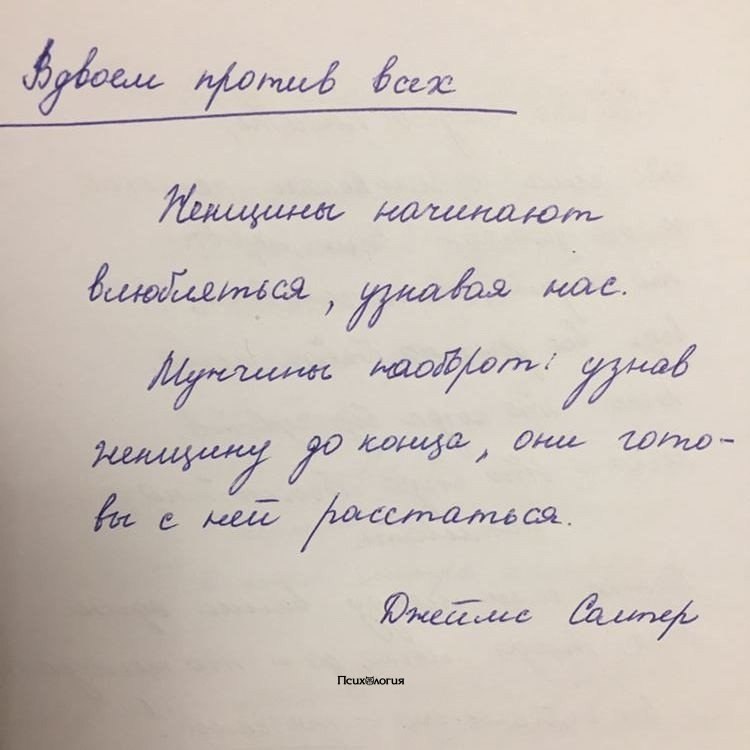 Вдвоем против всех
Женщины начинают
влюбляться, узнавая нас.
Мужчины наоборот: узнав
женщину до конца, они гото-
вы с ней расстаться.
Джеймс Солтер
Психология